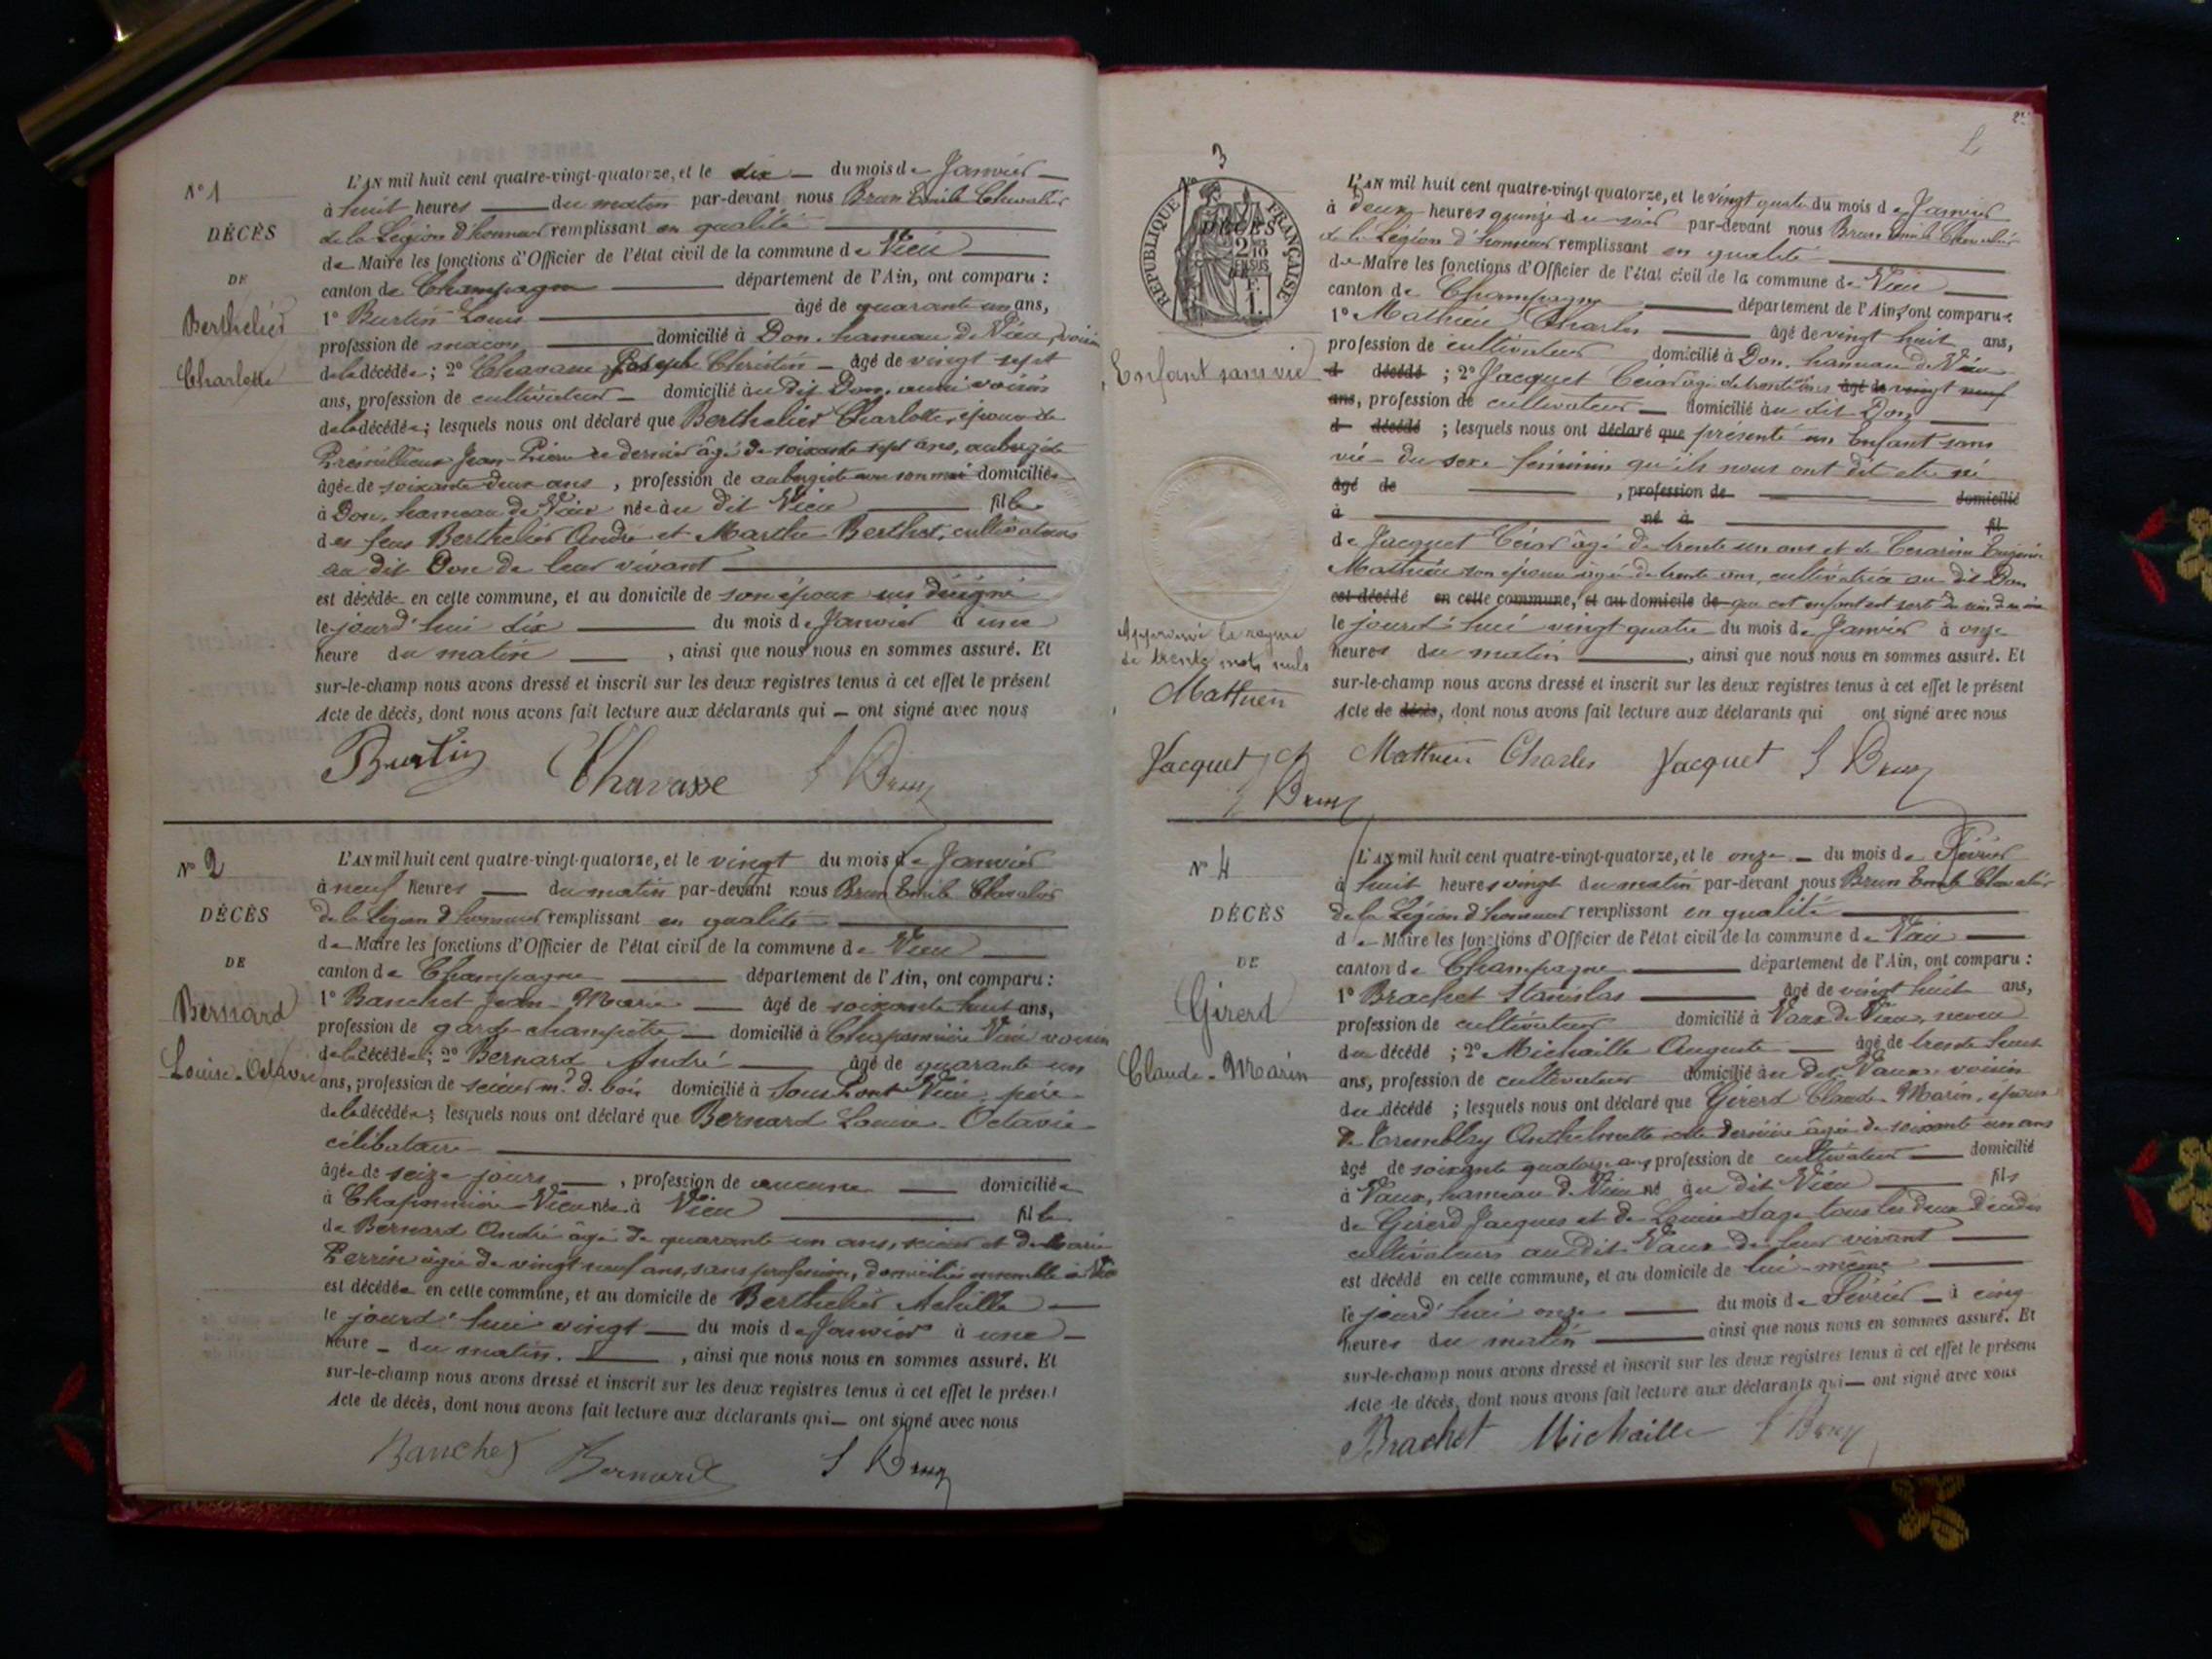 N° 1
DÉCÈS
DE
Berthelier
Charlotte
L'AN mil huit cent quatre-vingt-quatorze, et le dix du mois de Janvier
à huit heures du matin par-devant nous Brun Emile Chevalier
de la Légion d'honneur remplissant en qualité
de Maire les fonctions d'Officier de l'état civil de la commune de Vieu
canton de Champagne département de l'Ain, ont comparu :
1° Burtin Louis âgé de quarante un ans,
profession de maçon domicilié à Don, hameau de Vieu, voisin
de la décédée ; 2° Chavasse Joseph Christin âgé de vingt sept
ans, profession de cultivateur domicilié au dit Don, aussi voisin
de la décédée ; lesquels nous ont déclaré que Berthelier Charlotte, épouse de
Jean-Pierre ce dernier âgé de soixante sept ans, aubergiste
âgée de soixante deux ans, profession de aubergiste avec son mari domiciliée
à Don, hameau de Vieu née au dit Vieu fille
des feus Berthelier André et Marthe Berthet, cultivateurs
au dit Don de leur vivant
est décédée en cette commune, et au domicile de son époux sus désigné
le jourd'hui dix du mois de Janvier à une
heure du matin, ainsi que nous nous en sommes assuré. Et
sur-le-champ nous avons dressé et inscrit sur les deux registres tenus à cet effet le présent
Acte de décès, dont nous avons fait lecture aux déclarants qui — ont signé avec nous
Burtin Chavasse E Brun
N° 2
DÉCÈS
DE
Bernard
Louise-Octavie
L'AN mil huit cent quatre-vingt-quatorze, et le vingt du mois de Janvier
à neuf heures du matin par-devant nous Brun Emile Chevalier
de la Légion d'honneur remplissant en qualité
de Maire les fonctions d'Officier de l'état civil de la commune de Vieu
canton de Champagne département de l'Ain, ont comparu :
1° Banchet Jean-Marie âgé de soixante huit ans,
profession de garde-champêtre domicilié à Chaponnière Vieu voisin
de la décédée ; 2° Bernard André âgé de quarante un
ans, profession de scieur md de bois domicilié à Sous Pont Vieu, père
de la décédée ; lesquels nous ont déclaré que Bernard Louise-Octavie
célibataire
âgée de seize jours, profession de aucune domiciliée
à Chaponnière-Vieu née à Vieu fille
de Bernard André âgé de quarante un ans, scieur et de Marie
Perrin âgée de vingt neuf ans, sans profession, domiciliés ensemble à Vieu
est décédée en cette commune, et au domicile de Berthelier Achille
le jourd'hui vingt du mois de Janvier à une
heure du matin, ainsi que nous nous en sommes assuré. Et
sur-le-champ nous avons dressé et inscrit sur les deux registres tenus à cet effet le présent
Acte de décès, dont nous avons fait lecture aux déclarants qui — ont signé avec nous
Banchet Bernard E Brun
2
3
N°
DÉCÈS
RÉPUBLIQUE FRANÇAISE
Enfant sans vie
L'AN mil huit cent quatre-vingt-quatorze, et le vingt quatre du mois de Janvier
à deux heures quinze du soir par-devant nous Brun Emile Chevalier
de la Légion d'honneur remplissant en qualité
de Maire les fonctions d'Officier de l'état civil de la commune de Vieu
canton de Champagne département de l'Ain, ont comparu :
1° Mathieu Charles âgé de vingt huit ans,
profession de cultivateur domicilié à Don, hameau de Vieu
d décédé ; 2° Jacquet César âgé de trente un ans âgé de vingt neuf
ans, profession de cultivateur domicilié au dit Don
d décédé ; lesquels nous ont déclaré que présenté un Enfant sans
vie du sexe féminin qu'ils nous ont dit être né
âgé de , profession de domicilié
à né à fil
de Jacquet César âgé de trente un ans et de Césarine Eugénie
Mathieu son épouse âgée de trente ans, cultivatrice au dit Don
est décédé en cette commune, et au domicile de que cet enfant est sorti du sein de sa mère
le jourd'hui vingt quatre du mois de Janvier à onze
heures du matin, ainsi que nous nous en sommes assuré. Et
sur-le-champ nous avons dressé et inscrit sur les deux registres tenus à cet effet le présent
Acte de décès, dont nous avons fait lecture aux déclarants qui ont signé avec nous
Approuvé la rayure
de trente mots nuls
Mathieu
Jacquet C
E Brun
Mathieu Charles Jacquet E Brun
N° 4
DÉCÈS
DE
Girerd
Claude-Marin
L'AN mil huit cent quatre-vingt-quatorze, et le onze du mois de Février
à huit heures vingt du matin par-devant nous Brun Emile Chevalier
de la Légion d'honneur remplissant en qualité
de Maire les fonctions d'Officier de l'état civil de la commune de Vieu
canton de Champagne département de l'Ain, ont comparu :
1° Brachet Stanislas âgé de vingt huit ans,
profession de cultivateur domicilié à Vaux de Vieu, neveu
du décédé ; 2° Michaille Auguste âgé de trente huit
ans, profession de cultivateur domicilié au dit Vaux, voisin
du décédé ; lesquels nous ont déclaré que Girerd Claude-Marin, époux
de Tremblay Anthelmette cette dernière âgée de soixante un ans
âgé de soixante quatorze ans, profession de cultivateur domicilié
à Vaux, hameau de Vieu né au dit Vieu fils
de Girerd Jacques et de Louise Sage tous les deux décédés
cultivateurs au dit Vaux de leur vivant
est décédé en cette commune, et au domicile de lui-même
le jourd'hui onze du mois de Février à cinq
heures du matin ainsi que nous nous en sommes assuré. Et
sur-le-champ nous avons dressé et inscrit sur les deux registres tenus à cet effet le présent
Acte de décès, dont nous avons fait lecture aux déclarants qui — ont signé avec nous
Brachet Michaille E Brun